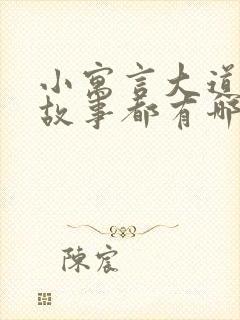 小寓言大道
故事都有哪
陳宸